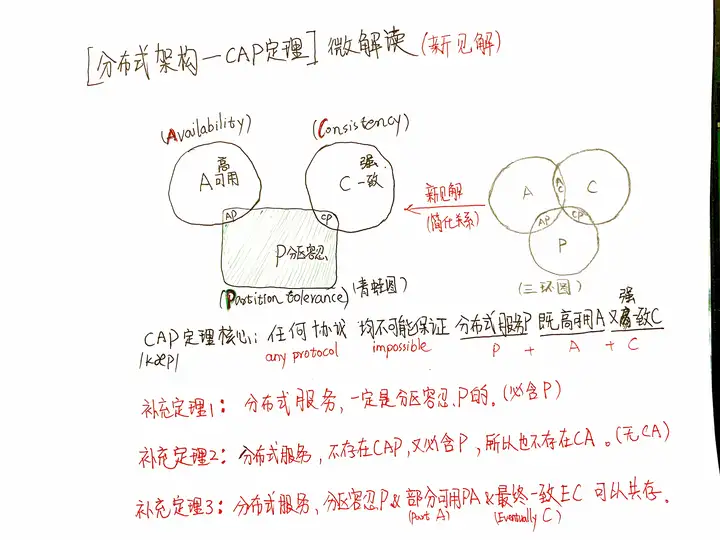 [分布式架构—CAP定理] 微解读 (新见解)
(Availability) (Consistency)
A 高可用
C 强一致
AP
CP
P分区容忍
(Partition tolerance) (青蛙图)
新见解
(简化关系)
A
C
AC
AP
CP
P
(三环图)
CAP定理核心: 任何协议 均不可能保证 分布式服务P 既高可用A 又强一致C
/kæp/ any protocol impossible P + A + C
补充定理1: 分布式服务,一定是分区容忍P的。(必含P)
补充定理2: 分布式服务,不存在CAP,又必含P,所以也不存在CA。(无CA)
补充定理3: 分布式服务,分区容忍P & 部分可用PA & 最终一致EC 可以共存.
(Part A) (Eventually C)